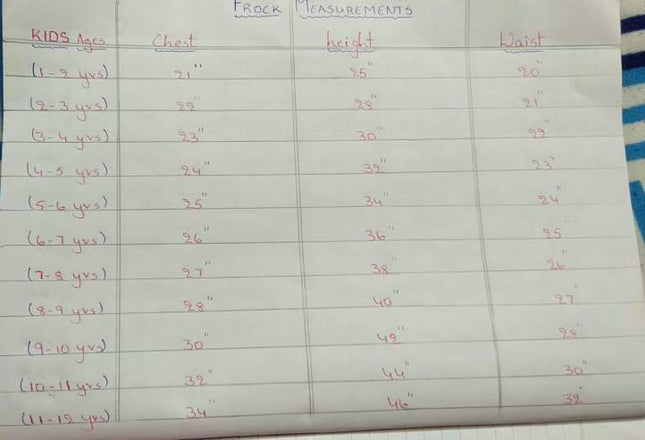 FROCK MEASUREMENTS
KIDS Ages Chest height Waist
(1-2 yrs) 21" 25" 20"
(2-3 yrs) 22" 28" 21"
(3-4 yrs) 23" 30" 22"
(4-5 yrs) 24" 32" 23"
(5-6 yrs) 25" 34" 24"
(6-7 yrs) 26" 36" 25"
(7-8 yrs) 27" 38" 26"
(8-9 yrs) 28" 40" 27"
(9-10 yrs) 30" 42" 28"
(10-11 yrs) 32" 44" 30"
(11-12 yrs) 34" 46" 32"